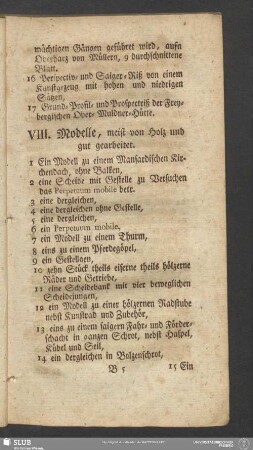 mächtigen Gängen geführet wird, aufn
Oberharz von Müllern, 9 durchschnittene
Blatt.
16 Perspectiv- und Saiger-Riß von einem
Kunstgezeug mit hohen und niedrigen
Sätzen,
17 Grund- Profil- und Prospectriß der Frey-
bergischen Ober- Muldner-Hütte.
VIII. Modelle, meist von Holz und
gut gearbeitet.
1 Ein Modell zu einem Mansardischen Kir-
chendach, ohne Balken,
2 eine Scheibe mit Gestelle zu Versuchen
das Perpetuum mobile betr.
3 eine dergleichen,
4 eine dergleichen ohne Gestelle,
5 eine dergleichen,
6 ein Perpetuum mobile,
7 ein Modell zu einem Thurm,
8 eins zu einem Pferdegöpel,
9 ein Gestellgen,
10 zehn Stück theils eiserne theils hölzerne
Räder und Getriebe,
11 eine Scheidebank mit vier beweglichen
Scheidejungen,
12 ein Modell zu einer hölzernen Radstube
nebst Kunstrad und Zubehör,
13 eins zu einem saigern Fahr- und Förder-
schacht in ganzen Schrot, nebst Haspel,
Kübel und Seil,
14 ein dergleichen in Bolzenschrot,
B 5 15 Ein
SLUB